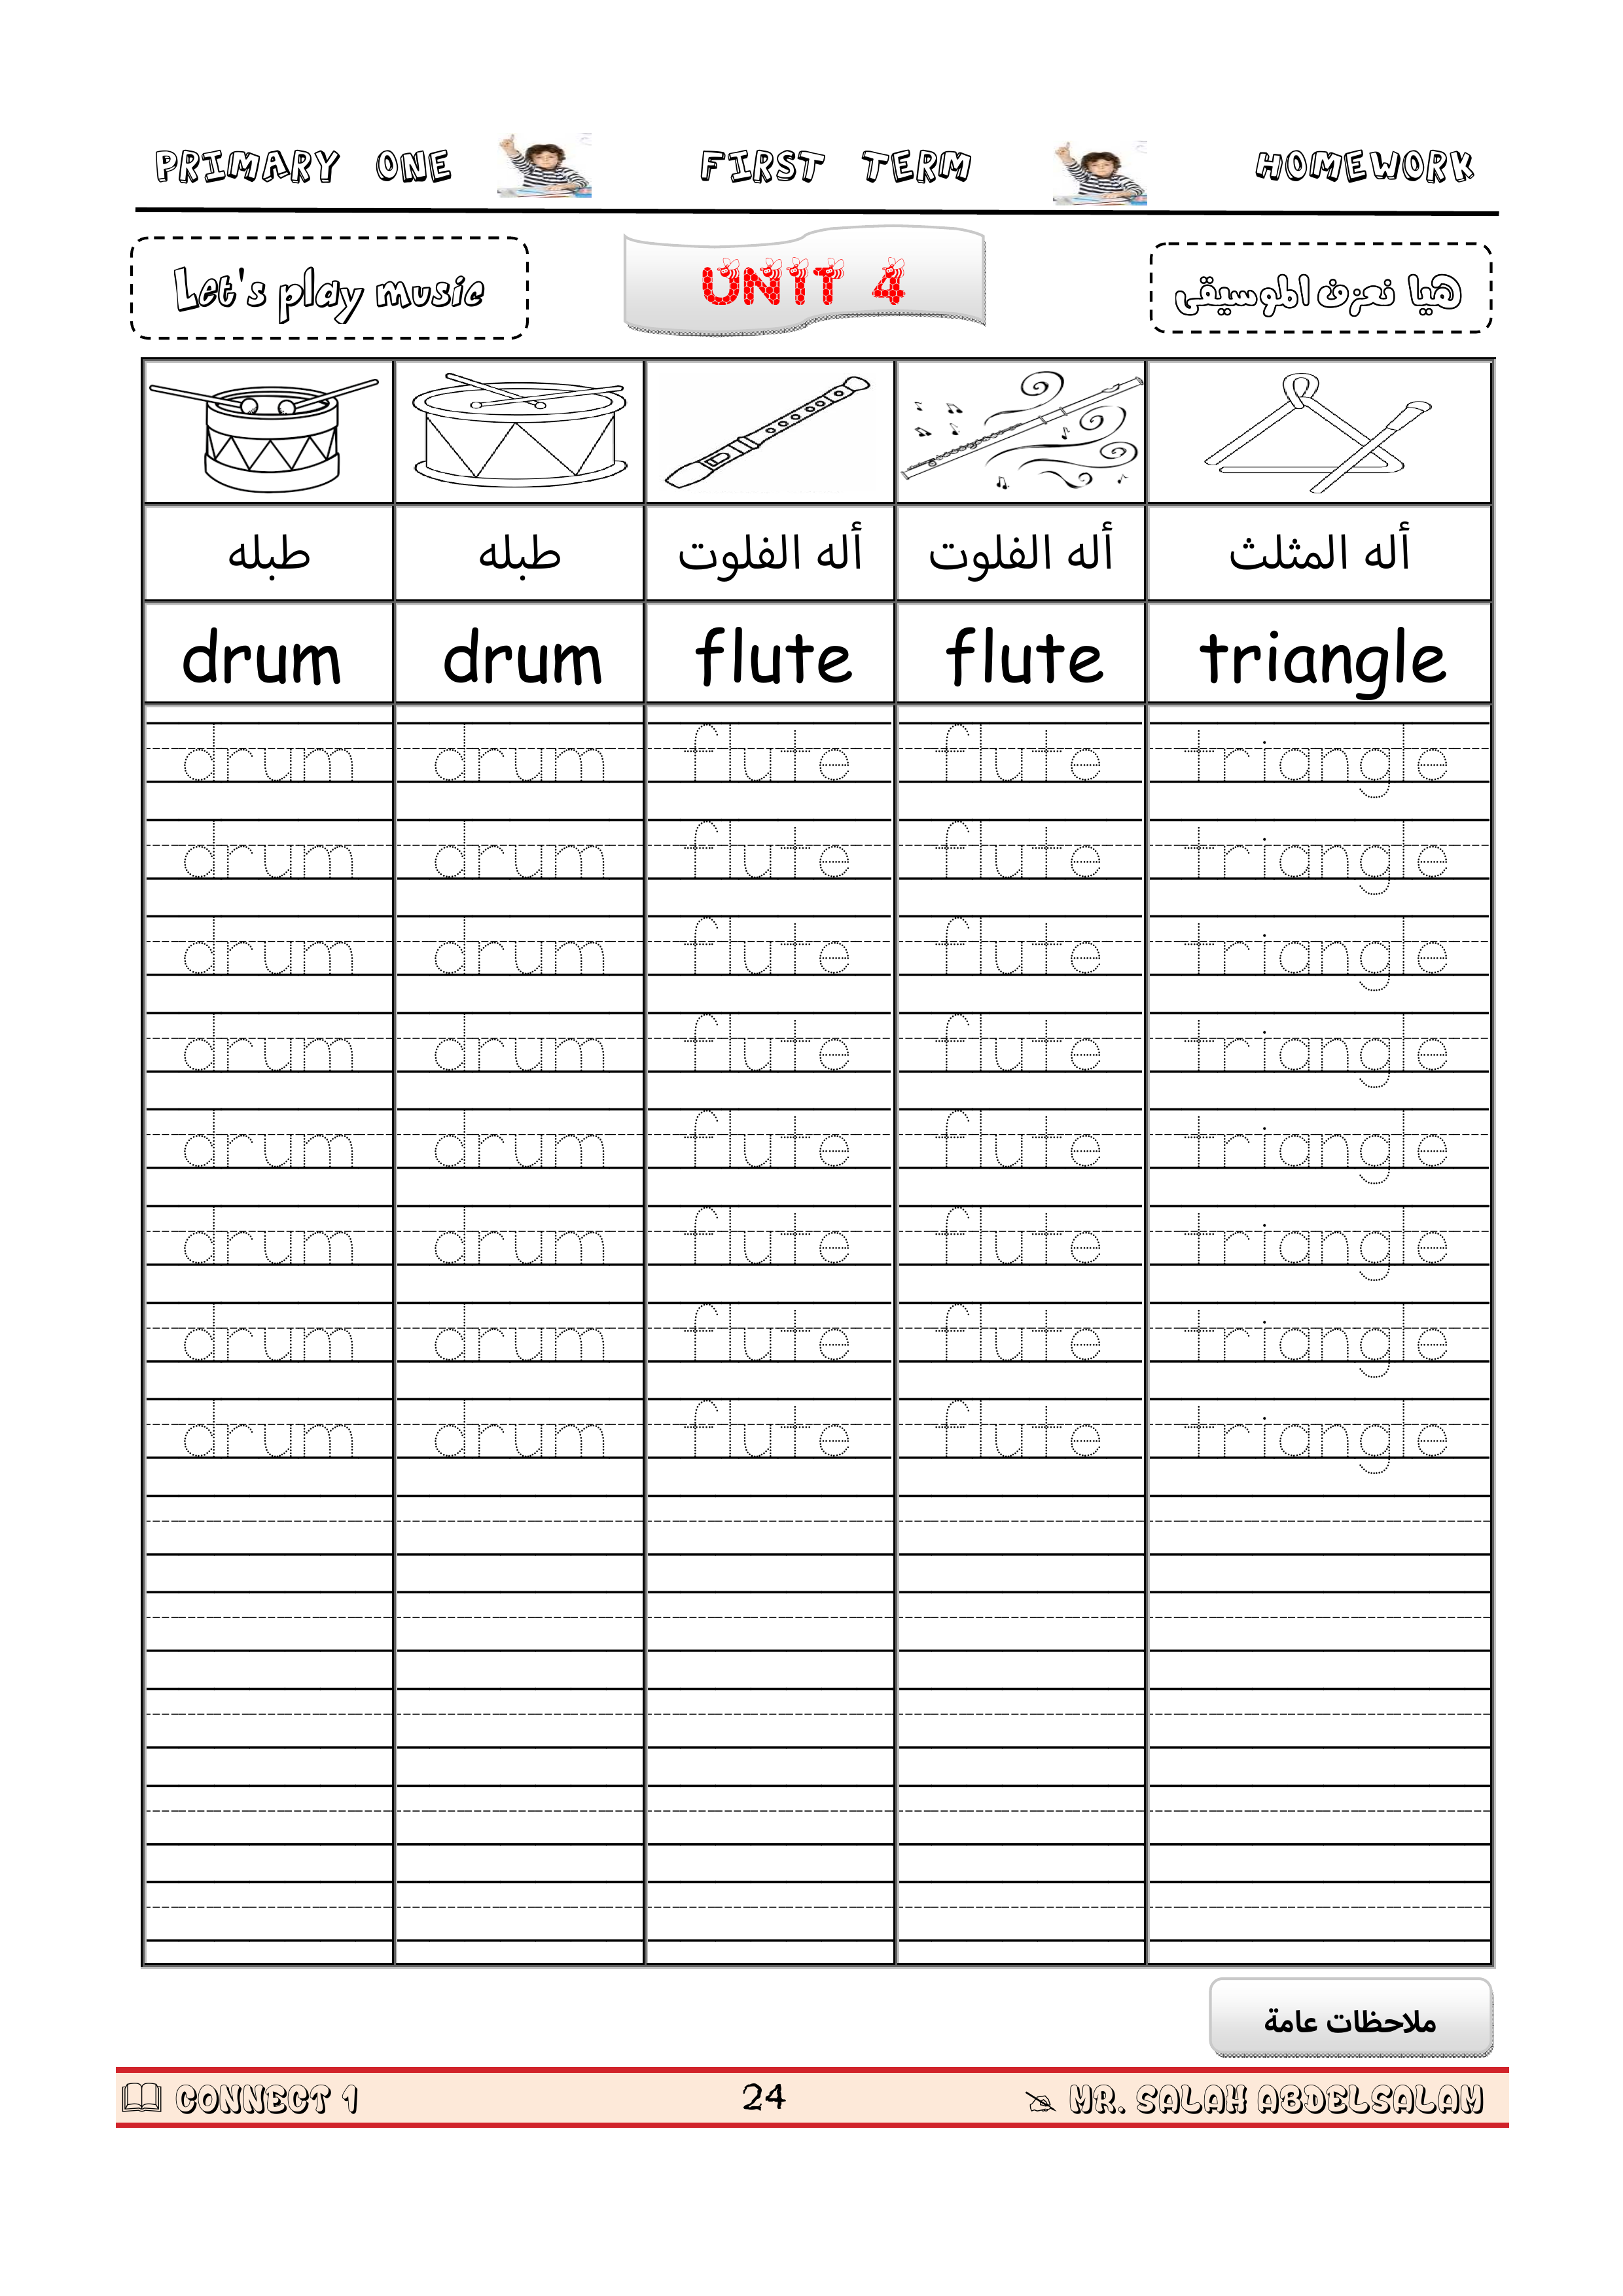 PRIMARY ONE FIRST TERM HOMEWORK
Let's play music UNIT 4 هيا نعزف الموسيقى
طبله طبله أله الفلوت أله الفلوت أله المثلث
drum drum flute flute triangle
drum drum flute flute triangle
drum drum flute flute triangle
drum drum flute flute triangle
drum drum flute flute triangle
drum drum flute flute triangle
drum drum flute flute triangle
drum drum flute flute triangle
drum drum flute flute triangle
ملاحظات عامة
CONNECT 1 24 MR. SALAH ABDELSALAM